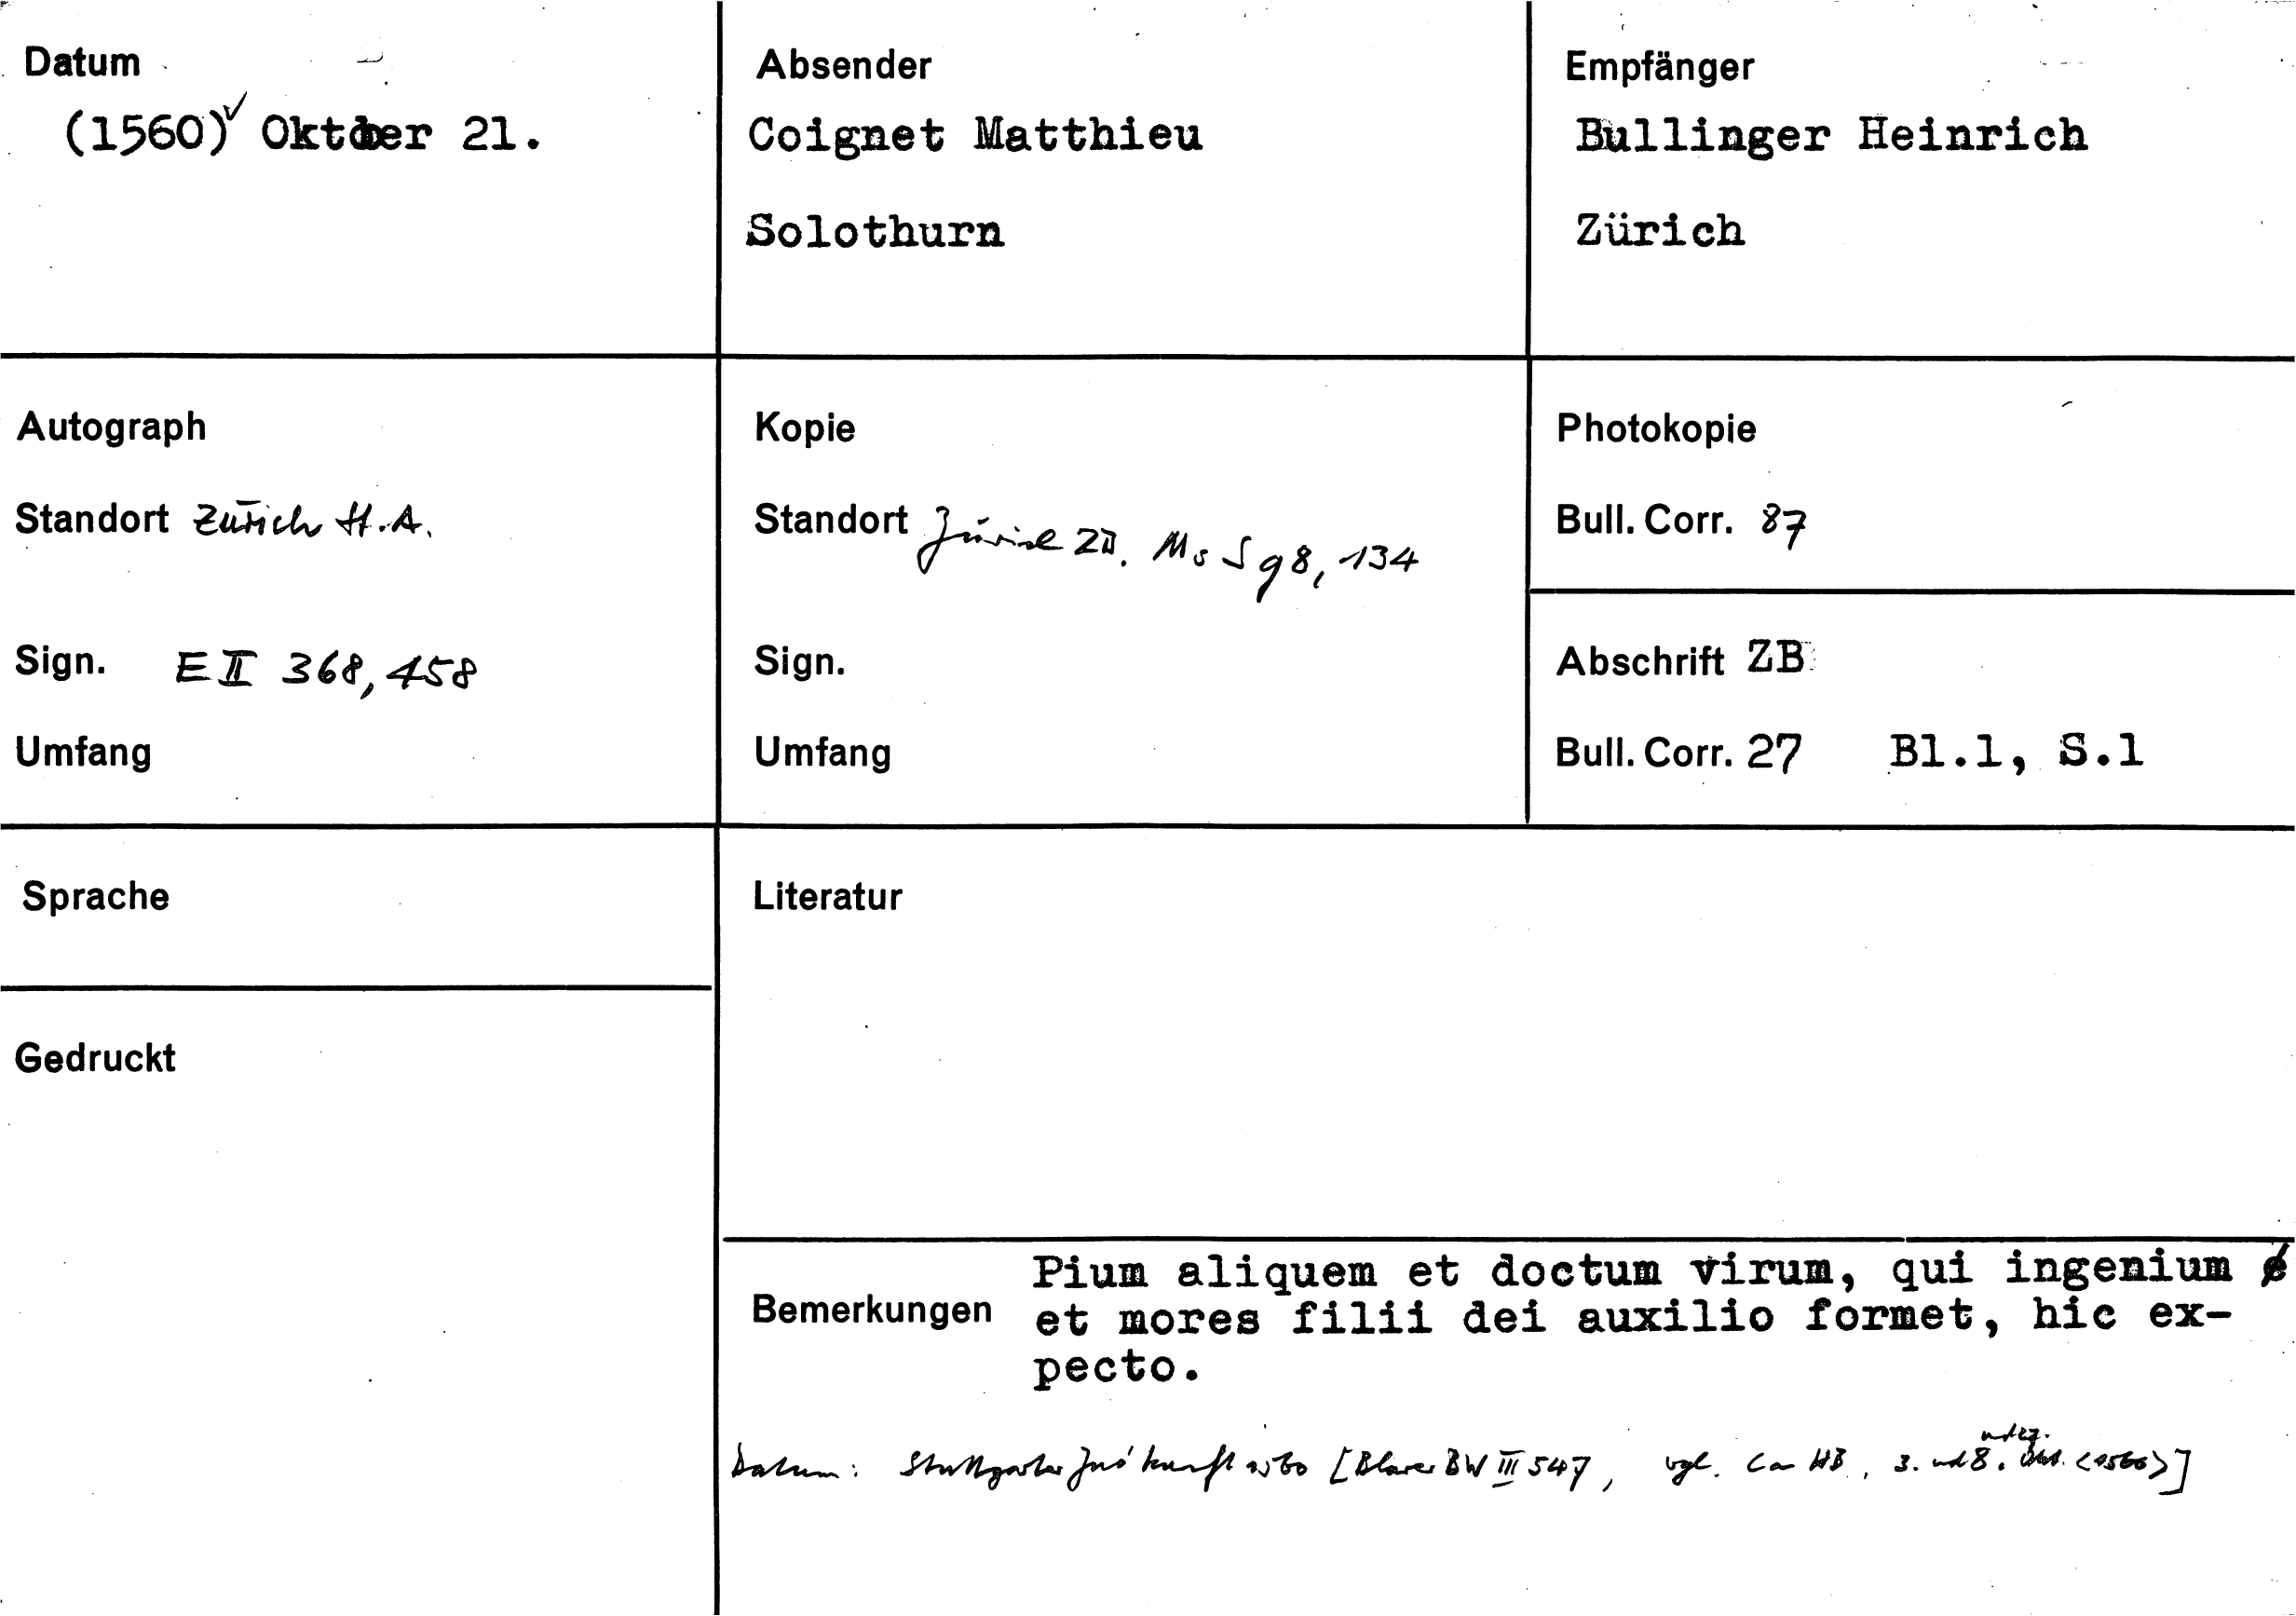 Datum
(1560)✓ Oktober 21.
Absender
Coignet Matthieu
Solothurn
Empfänger
Bullinger Heinrich
Zürich
Autograph
Standort Zürich St.A.
Sign. E II 368, 458
Umfang
Kopie
Standort Zürich ZB. Ms S 98, 134
Sign.
Umfang
Photokopie
Bull. Corr. 87
Abschrift ZB
Bull. Corr. 27 Bl.1, S.1
Sprache
Gedruckt
Literatur
Bemerkungen
Pium aliquem et doctum virum, qui ingenium
et mores filii dei auxilio formet, hic ex-
pecto.
Datum: Stuttgarter 1560 [Blarer BW III 547, vgl. HB, 3. und 8. <1560>]